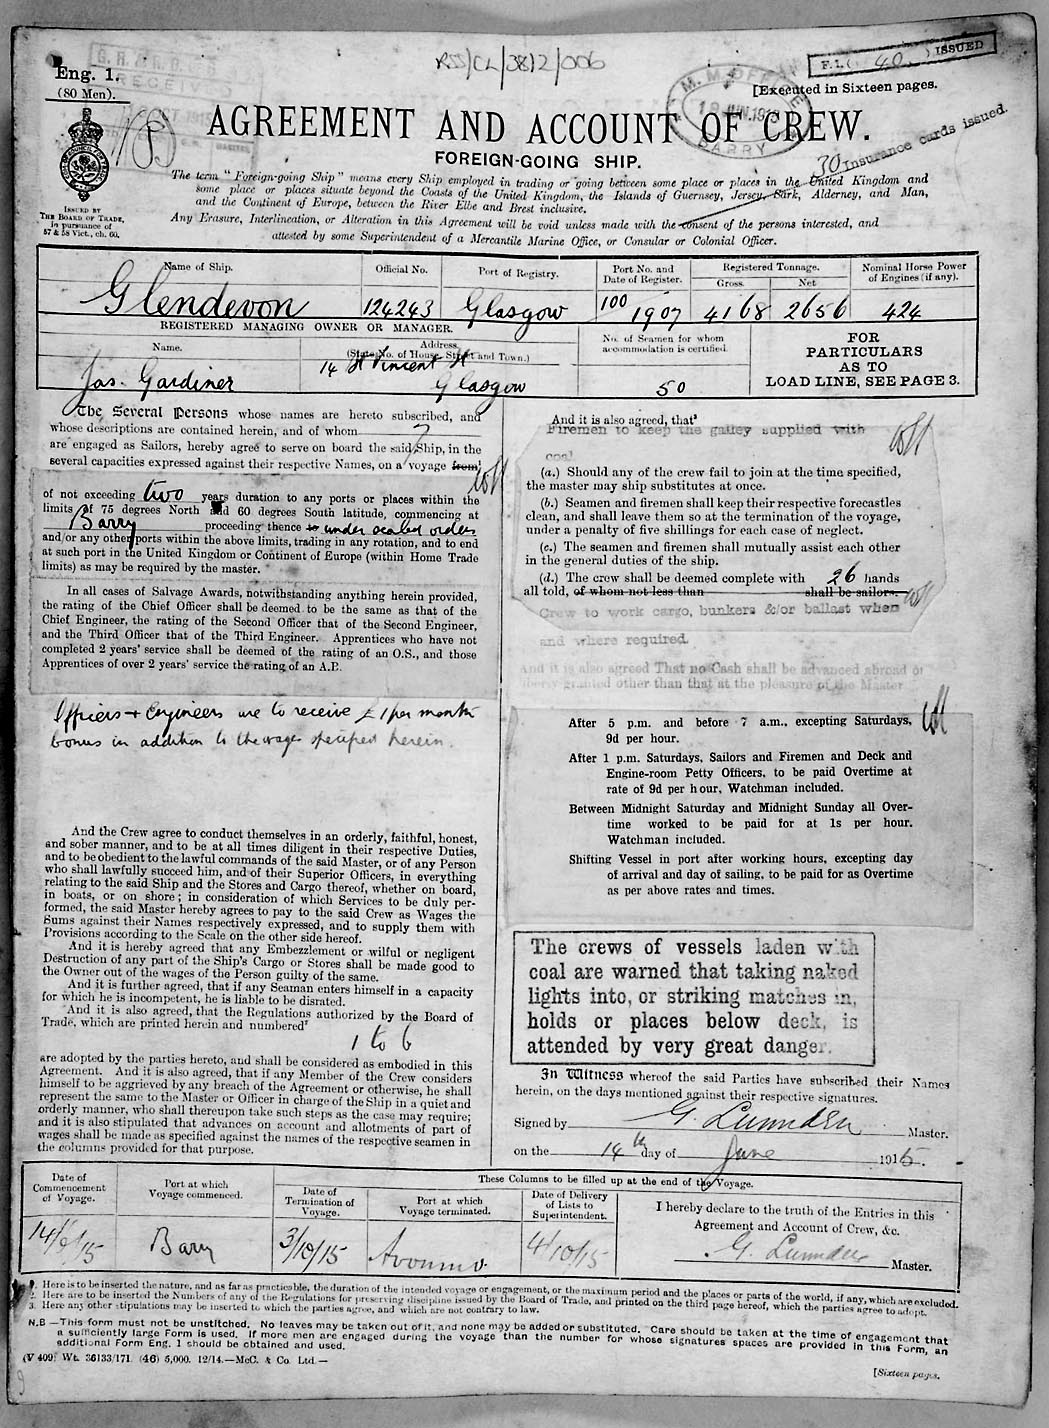 RSS/CL/3812/006
F.I.( 40. ) ISSUED
Eng. 1.
(80 Men).
RECEIVED
M. M. OFFICE
JUN. 191
BARRY
[Executed in Sixteen pages.
AGREEMENT AND ACCOUNT OF CREW.
FOREIGN-GOING SHIP.
30 Insurance cards issued.
ISSUED BY
THE BOARD OF TRADE,
in pursuance of
57 & 58 Vict., ch. 60.
The term "Foreign-going Ship" means every Ship employed in trading or going between some place or places in the United Kingdom and
some place or places situate beyond the Coasts of the United Kingdom, the Islands of Guernsey, Jersey, Sark, Alderney, and Man,
and the Continent of Europe, between the River Elbe and Brest inclusive.
Any Erasure, Interlineation, or Alteration in this Agreement will be void unless made with the consent of the persons interested, and
attested by some Superintendent of a Mercantile Marine Office, or Consular or Colonial Officer.
Name of Ship. Official No. Port of Registry. Port No. and Date of Register. Registered Tonnage. Gross. Net Nominal Horse Power of Engines (if any).
Glendevon 124243 Glasgow 100 1907 4168 2656 424
REGISTERED MANAGING OWNER OR MANAGER.
Name. Address. (State No. of House, Street and Town.) No. of Seamen for whom accommodation is certified.
Jas. Gardiner 14 St Vincent St Glasgow 50
FOR
PARTICULARS
AS TO
LOAD LINE, SEE PAGE 3.
The Several Persons whose names are hereto subscribed, and
whose descriptions are contained herein, and of whom 7
are engaged as Sailors, hereby agree to serve on board the said Ship, in the
several capacities expressed against their respective Names, on a voyage from
of not exceeding two years duration to any ports or places within the
limits of 75 degrees North and 60 degrees South latitude, commencing at
Barry proceeding thence to under sealed orders
and/or any other ports within the above limits, trading in any rotation, and to end
at such port in the United Kingdom or Continent of Europe (within Home Trade
limits) as may be required by the master.
In all cases of Salvage Awards, notwithstanding anything herein provided,
the rating of the Chief Officer shall be deemed to be the same as that of the
Chief Engineer, the rating of the Second Officer that of the Second Engineer,
and the Third Officer that of the Third Engineer. Apprentices who have not
completed 2 years' service shall be deemed of the rating of an O.S., and those
Apprentices of over 2 years' service the rating of an A.B.
Officers & Engineers are to receive £1 per month
bonus in addition to the wage specified herein.
And the Crew agree to conduct themselves in an orderly, faithful, honest,
and sober manner, and to be at all times diligent in their respective Duties,
and to be obedient to the lawful commands of the said Master, or of any Person
who shall lawfully succeed him, and of their Superior Officers, in everything
relating to the said Ship and the Stores and Cargo thereof, whether on board,
in boats, or on shore; in consideration of which Services to be duly per-
formed, the said Master hereby agrees to pay to the said Crew as Wages the
Sums against their Names respectively expressed, and to supply them with
Provisions according to the Scale on the other side hereof.
And it is hereby agreed that any Embezzlement or wilful or negligent
Destruction of any part of the Ship's Cargo or Stores shall be made good to
the Owner out of the wages of the Person guilty of the same.
And it is further agreed, that if any Seaman enters himself in a capacity
for which he is incompetent, he is liable to be disrated.
And it is also agreed, that the Regulations authorized by the Board of
Trade, which are printed herein and numbered²
1 to 6
are adopted by the parties hereto, and shall be considered as embodied in this
Agreement. And it is also agreed, that if any Member of the Crew considers
himself to be aggrieved by any breach of the Agreement or otherwise, he shall
represent the same to the Master or Officer in charge of the Ship in a quiet and
orderly manner, who shall thereupon take such steps as the case may require;
and it is also stipulated that advances on account and allotments of part of
wages shall be made as specified against the names of the respective seamen in
the columns provided for that purpose.
And it is also agreed, that³
Firemen to keep the galley supplied with
coal
(a.) Should any of the crew fail to join at the time specified,
the master may ship substitutes at once.
(b.) Seamen and firemen shall keep their respective forecastles
clean, and shall leave them so at the termination of the voyage,
under a penalty of five shillings for each case of neglect.
(c.) The seamen and firemen shall mutually assist each other
in the general duties of the ship.
(d.) The crew shall be deemed complete with 26 hands
all told, of whom not less than shall be sailors.
Crew to work cargo, bunkers &/or ballast when
and where required.
And it is also agreed That no Cash shall be advanced abroad or
liberty granted other than that at the pleasure of the Master
After 5 p.m. and before 7 a.m., excepting Saturdays,
9d per hour.
After 1 p.m. Saturdays, Sailors and Firemen and Deck and
Engine-room Petty Officers, to be paid Overtime at
rate of 9d per hour, Watchman included.
Between Midnight Saturday and Midnight Sunday all Over-
time worked to be paid for at 1s per hour.
Watchman included.
Shifting Vessel in port after working hours, excepting day
of arrival and day of sailing, to be paid for as Overtime
as per above rates and times.
The crews of vessels laden with
coal are warned that taking naked
lights into, or striking matches in,
holds or places below deck, is
attended by very great danger.
In Witness whereof the said Parties have subscribed their Names
herein, on the days mentioned against their respective signatures.
Signed by G. Lumsden Master.
on the 14th day of June 1915.
These Columns to be filled up at the end of the Voyage.
Date of Commencement of Voyage. Port at which Voyage commenced. Date of Termination of Voyage. Port at which Voyage terminated. Date of Delivery of Lists to Superintendent.
I hereby declare to the truth of the Entries in this
Agreement and Account of Crew, &c.
14/6/15 Barry 3/10/15 Avonmo. 4/10/15 G. Lumsden Master.
1. Here is to be inserted the nature, and as far as practicable, the duration of the intended voyage or engagement, or the maximum period and the places or parts of the world, if any, which are excluded.
2. Here are to be inserted the Numbers of any of the Regulations for preserving discipline issued by the Board of Trade, and printed on the third page hereof, which the parties agree to adopt.
3. Here any other stipulations may be inserted to which the parties agree, and which are not contrary to law.
N.B —This form must not be unstitched. No leaves may be taken out of it, and none may be added or substituted. Care should be taken at the time of engagement that
a sufficiently large Form is used. If more men are engaged during the voyage than the number for whose signatures spaces are provided in this Form, an
additional Form Eng. 1 should be obtained and used.
(V 409) Wt. 36133/171 (46) 5,000. 12/14.—McC. & Co. Ltd.—
[Sixteen pages.